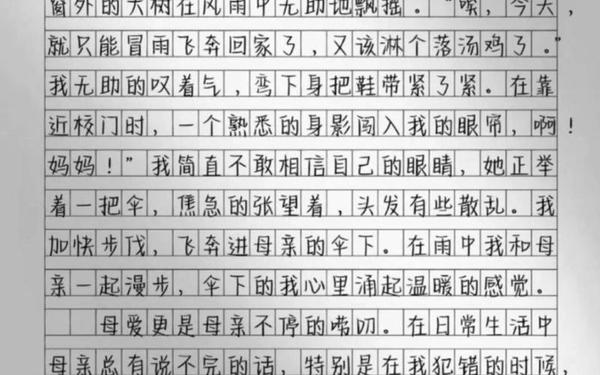 窗外的大树在风雨中无助地飘摇。“唉，今天，
就只能冒雨飞奔回家了，又该淋个落汤鸡了。”
我无助的叹着气，弯下身把鞋带紧了紧。在靠
近校门时，一个熟悉的身影闯入我的眼帘，啊！
妈妈！”我简直不敢相信自己的眼睛，她正举
着一把伞，焦急的张望着，头发有些散乱。我
加快步伐，飞奔进母亲的伞下。在雨中我和母
亲一起漫步，伞下的我心里涌起温暖的感觉。
母爱更是母亲不停的唠叨。在日常生活中
母亲总有说不完的话，特别是在我犯错的时候，